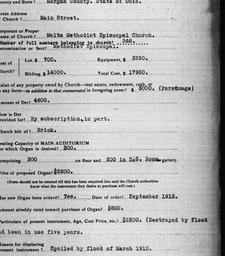 County and State! Morgan County. State of Ohio.
Street Address
of Church! Main Street.
Corporate or Proper
Name of Church! Malta Methodist Episcopal Church.
Number of full members belonging to church? 268
Denomination or Sect? Methodist Episcopal.
Cost of Church? Lot $ 700. Equipment, $ 3250.
Bldg. $ 14000. Total Cost, $ 17950.
Value of any property of Church—real estate, endowment, cash, or
in any form—in addition to that enumerated in foregoing answer? $ 3000. (Parsonage)
Amount of Debt? 4600.
How is Debt
Provided for? By subscription, in part.
Church built of? Brick.
Seating Capacity of MAIN AUDITORIUM
for which Organ is desired? 500.
comprising 300 on floor and 200 in S.S. Room gallery.
Price of proposed Organ? $2200.
(Form should not be returned till this has been inquired into and the Church authorities
know what the instrument they desire to purchase will cost.)
Has new Organ been ordered? Yes. Date of order? September 1913.
Amount already raised toward purchase of Organ? $600.
Particulars of present instrument, Age, Cost Price, etc., $1200. (Destroyed by flood
had been in use five years.
Reason for displacing
present instrument? Spoiled by flood of March 1913.